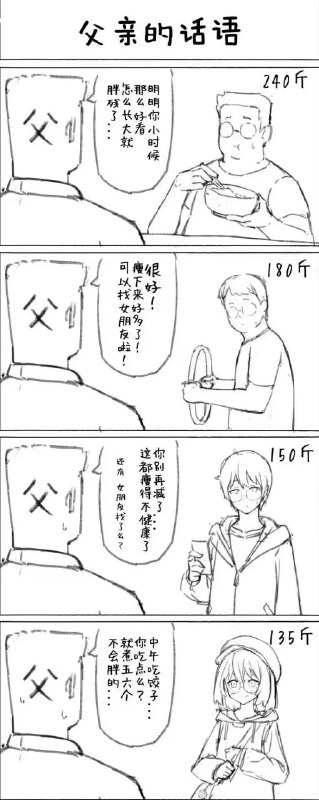 父亲的话语
240斤
明明你小时候
那么好看
怎么长大就
胖残了...
父
180斤
很好！
瘦下来好多了！
可以找女朋友啦！
父
150斤
你别再减了...
这都瘦得不健康了
还有 女朋友找了么？
父
135斤
中午吃饺子...
你吃点么？
就煮五六个
不会胖的...
父